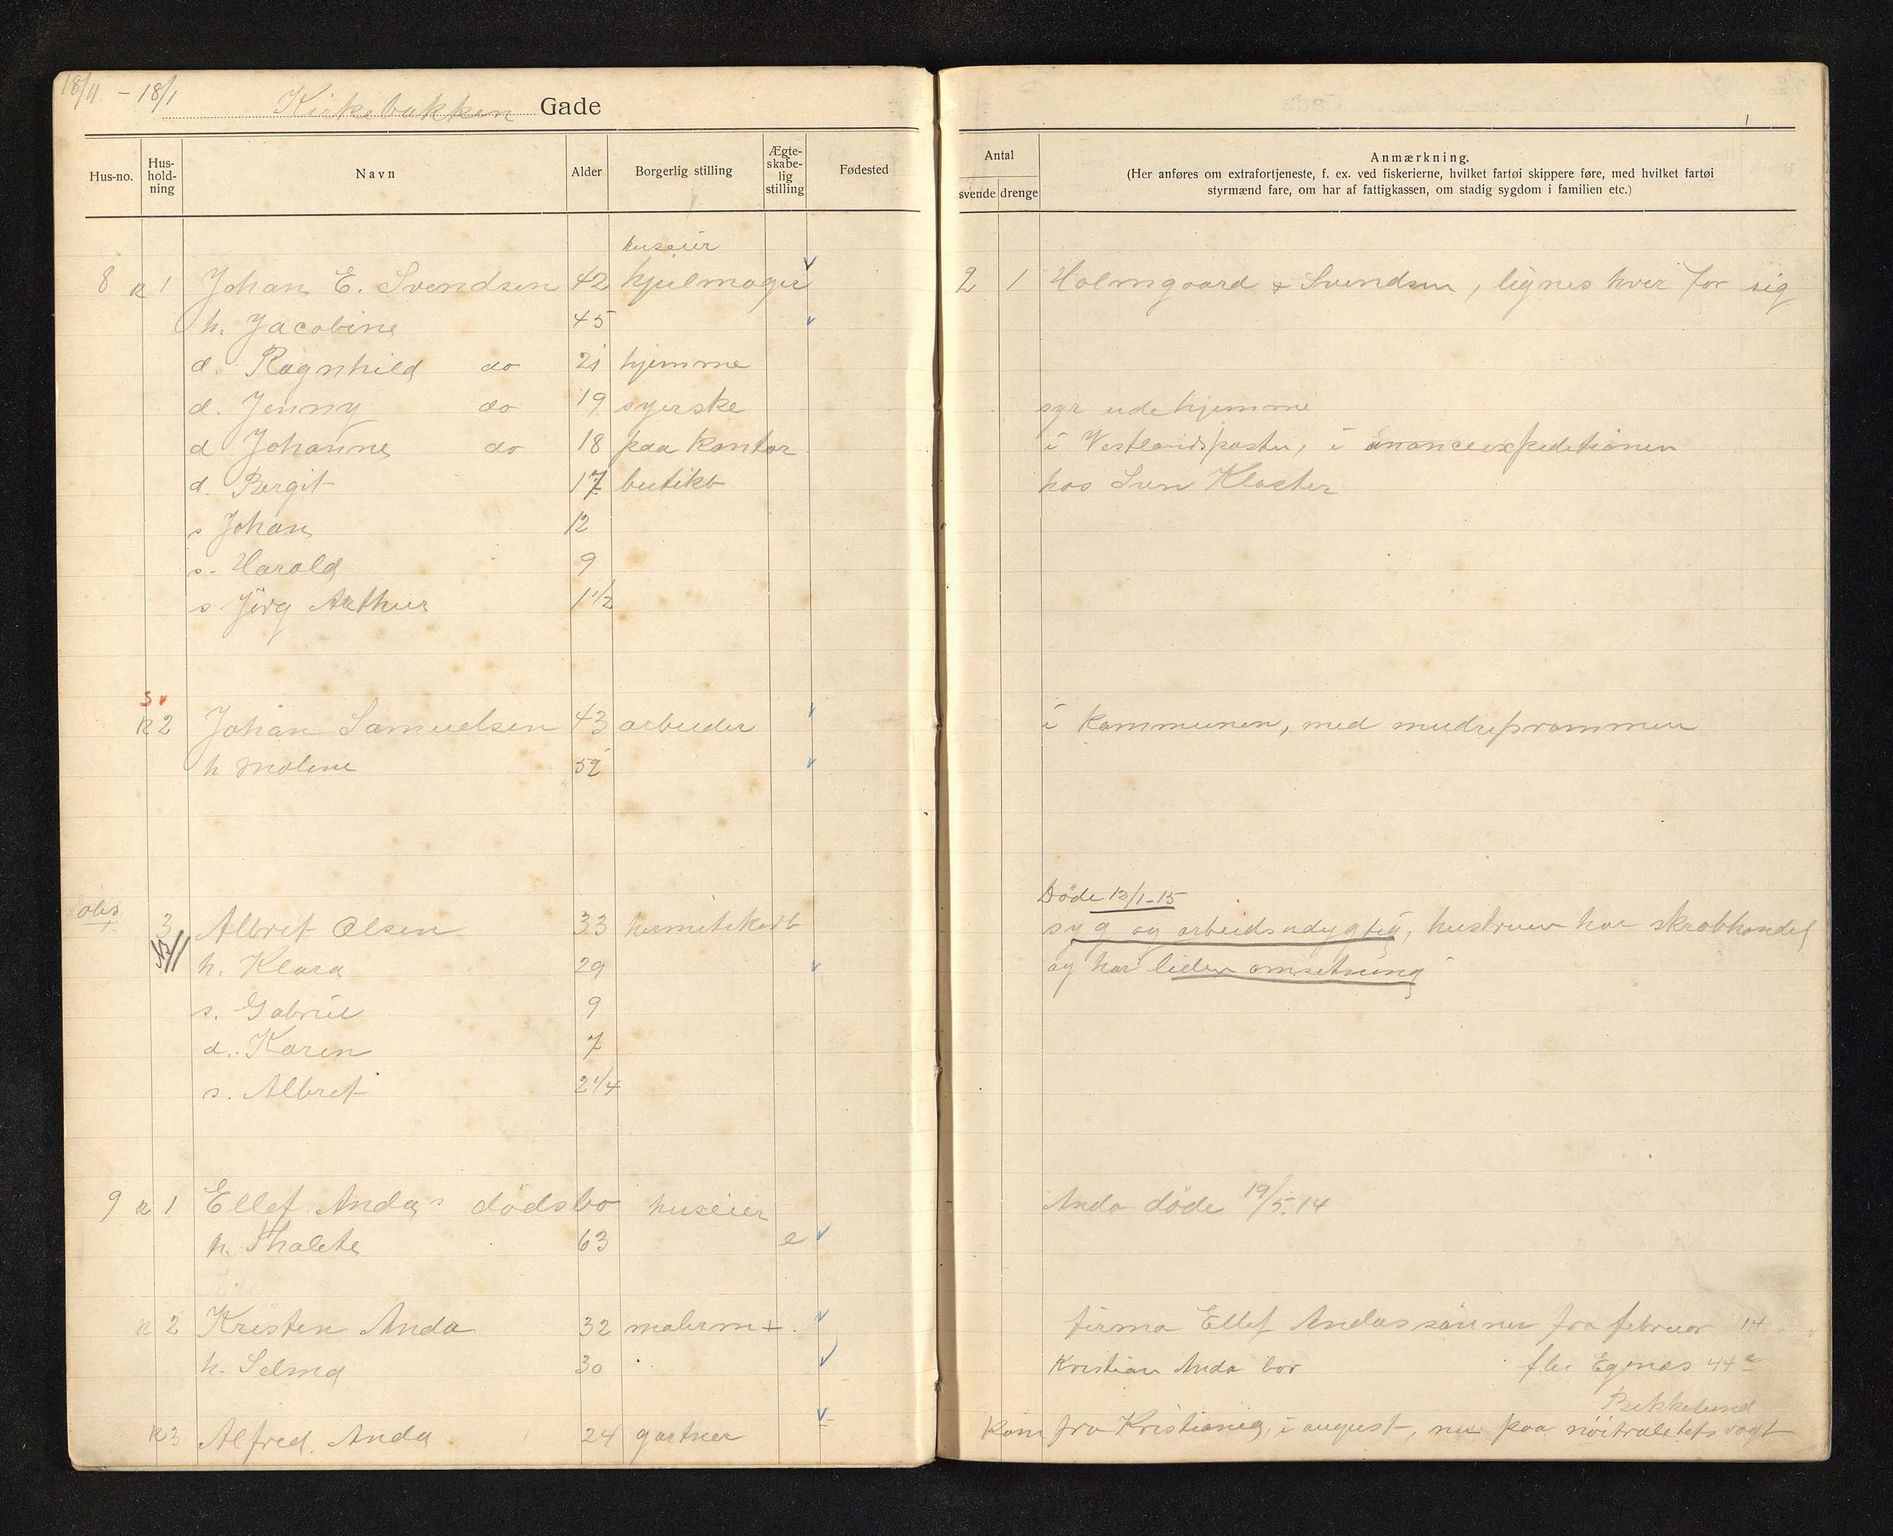 18/11 - 18/1
Kirkebakken Gade
Hus-no. Hus-hold-ning Navn Alder Borgerlig stilling Ægte-skabe-lig stilling Fødested
Antal
svende drenge
Anmærkning.
(Her anføres om extrafortjeneste, f. ex. ved fiskerierne, hvilket fartøi skippere føre, med hvilket fartøi
styrmænd fare, om har af fattigkassen, om stadig sygdom i familien etc.)
1
huseier
8 R 1 Johan E. Svendsen 42 hjulmager 2 1 Holmgaard & Svendsen, lignes hver for sig
h. Jacobine 45
d. Ragnhild do 21 hjemme
d. Jenny do 19 syerske syr ude hjemme
d Johanne do 18 paa kontor i Vestlandsposten, i ananceexpeditionen
d. Bergit 17 butikb hos Sven Kloster
s Johan 12
s. Harald 9
s Jörg Arthur 1 1/2
S v
R 2 Johan Samuelsen 43 arbeider i kommunen, med mudreprammen
h Malene 52
Döde 13/1-15
obs. 3 Albret Olsen 33 hermetikarb syg og arbeidsudygtig, hustruen har skrabhandel
h. Klara 29 og har liden omsetning
s. Gabriel 9
d. Karen 7
s. Albret 2 1/4
9 R 1 Ellef Andas dödsbo huseier Anda döde 19/5.14
h. Thalete 63 e
R 2 Kristen Anda 32 malerm + firma Ellef Andas sönner fra februar 14
h. Selma 30 Kristian Anda bor Egenæs 44 a
Bekkelund
R 3 Alfred Anda 24 gartner Kom fra Kristiania, i august, nu paa nöitralitetsvagt